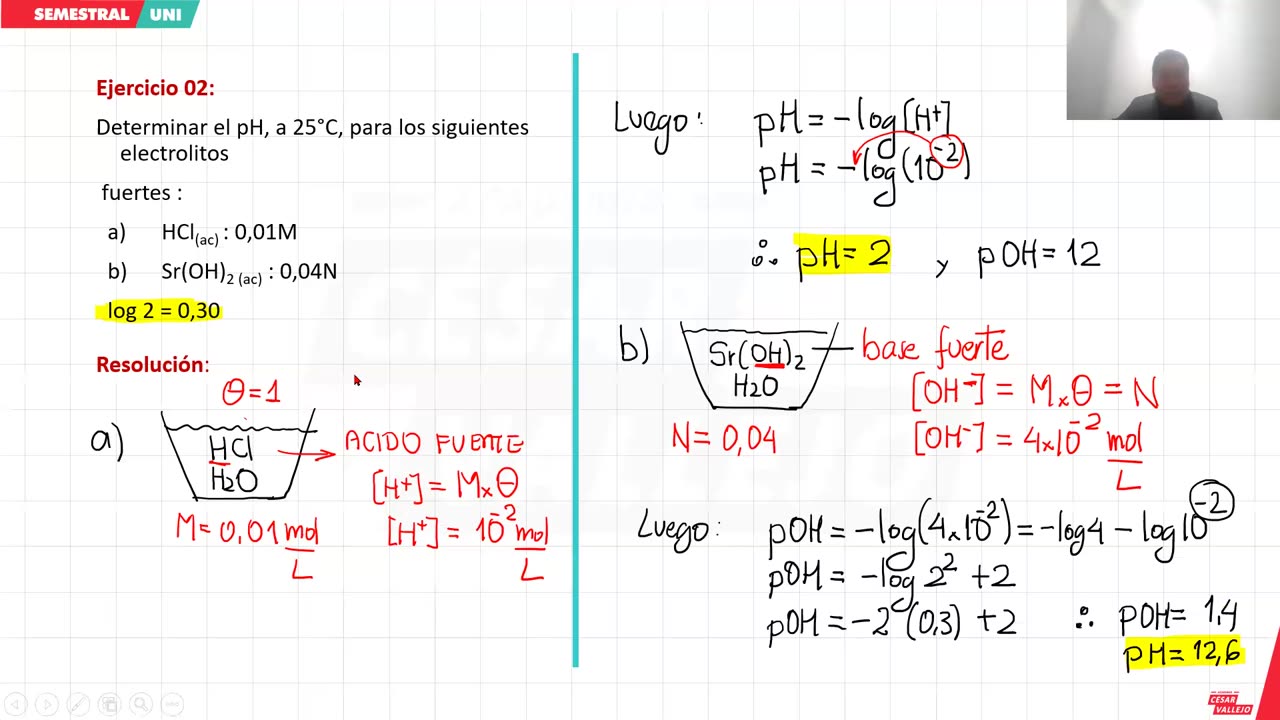 SEMESTRAL UNI
Ejercicio 02:
Determinar el pH, a 25°C, para los siguientes
electrolitos
fuertes :
a) HCl(ac) : 0,01M
b) Sr(OH)2 (ac) : 0,04N
log 2 = 0,30
Resolución:
θ=1
a)
HCl
H2O
ACIDO FUERTE
[H+] = M×θ
M=0,01 mol/L
[H+] = 10^-2 mol/L
Luego: pH = -log[H+]
pH = -log(10^-2)
∴ pH=2 y pOH=12
b)
Sr(OH)2
H2O
base fuerte
[OH-] = M×θ = N
N=0,04
[OH-] = 4×10^-2 mol/L
Luego: pOH = -log(4×10^-2) = -log4 - log10^-2
pOH = -log 2^2 +2
pOH = -2 (0,3) +2 ∴ pOH= 1,4
pH=12,6
CESAR
VALLEJO